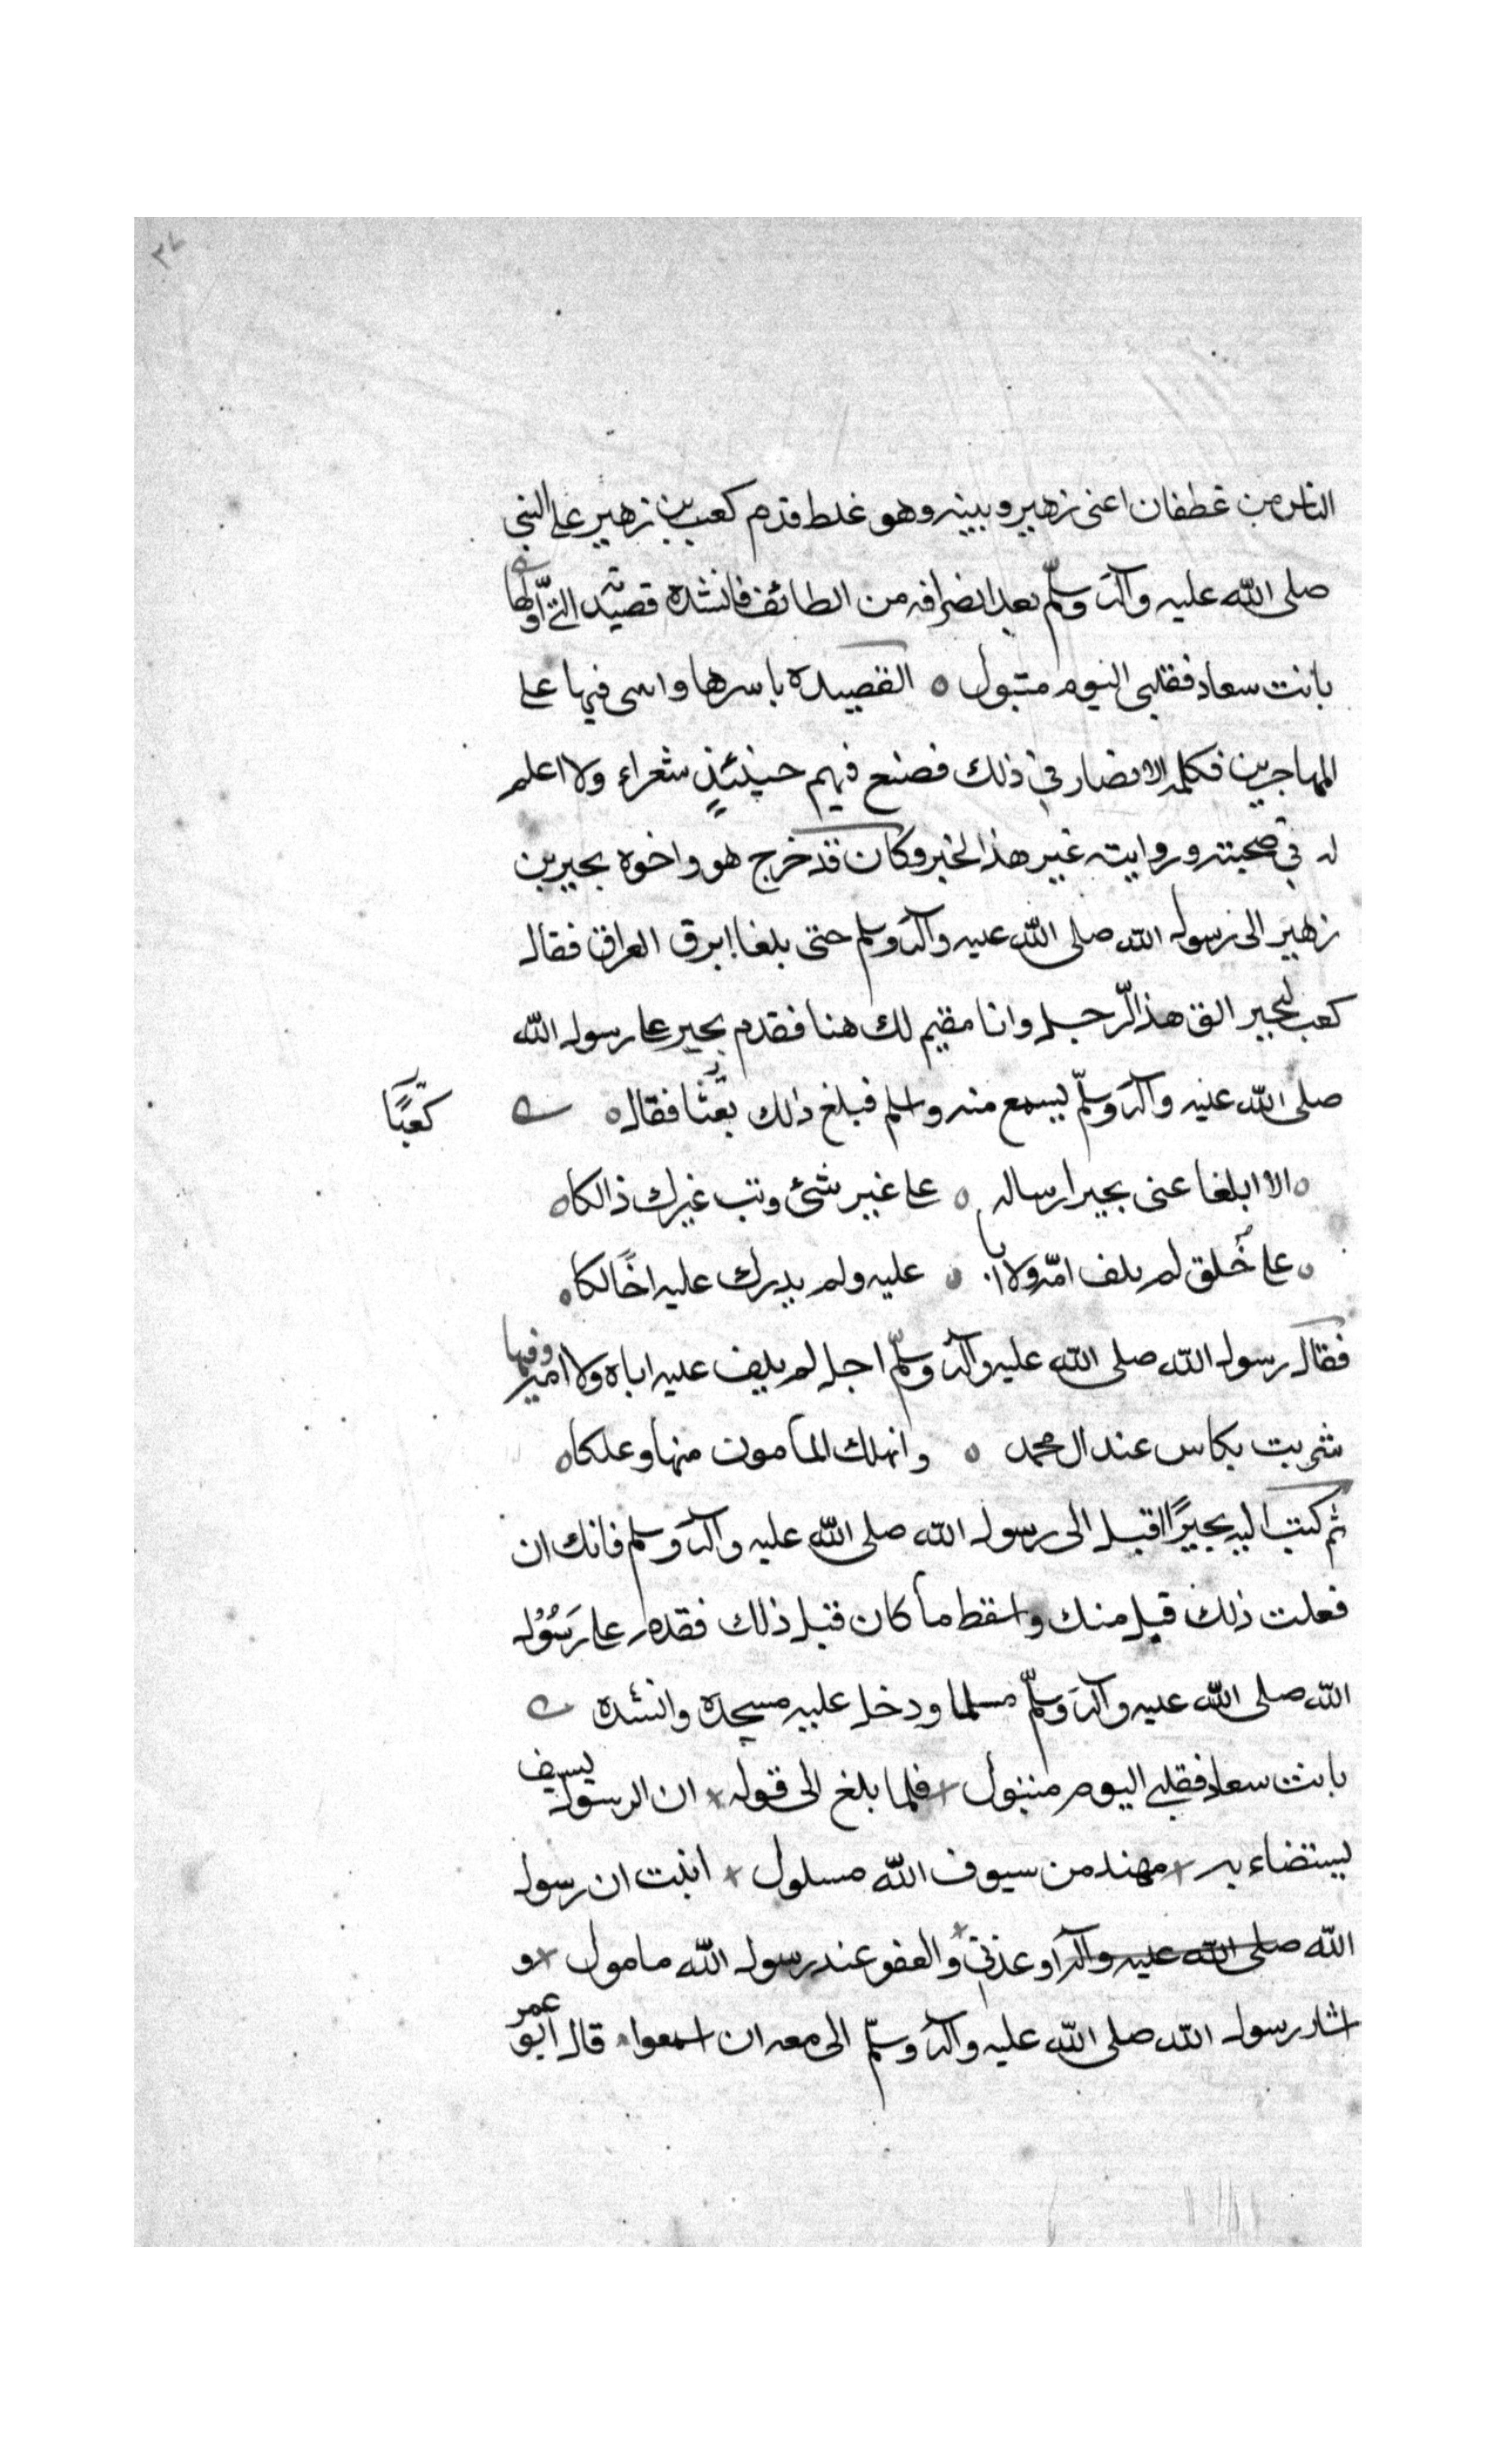 ٣٧
الناس من غطفان اعنى زهير وبينه وهو غلط قدم كعب بن زهير على النبى
صلى الله عليه وآله وسلّم بعد انصرافه من الطائف فانشده قصيدته التى اوّلها
بانت سعاد فقلبى اليوم متبول ه القصيدة باسرها واثنى فيها على
المهاجرين فكلمه الانصار في ذلك فصنع فيهم حينئذٍ شعراء ولا اعلم
له في صحبته وروايته غير هذا الخبر وكان قد خرج هو واخوه بجير بن
زهير الى رسول الله صلى الله عليه وآله وسلم حتى بلغا ابرق العراق فقال
كعب لبجير الق هذا الرّجل وانا مقيم لك هنا فقدم بجير على رسول الله
صلى الله عليه وآله وسلّم يسمع منه واسلم فبلغ ذلك فقال ه
كعبًا
ه الا ابلغا عنى بجيرا رساله ه على غير شئ وتب غيرك ذالكا ه
ه على خُلق لم يلف امّه ولا ابا ه عليه ولم يدرك عليه اخًا لكا ه
فقال رسول الله صلى الله عليه وآله وسلّم اجل لم يلف عليه اباه ولا امه وفيها
شربت بكاس عند ال محمد ه وانهلك المأمون منها وعلكا ه
ثم كتب اليه بجيرًا اقبل الى رسول الله صلى الله عليه وآله وسلم فانك ان
فعلت ذلك قبل منك واسقط ما كان قبل ذلك فقدم على رَسُوْل
الله صلى الله عليه وآله وسلّم مسلما ودخل عليه مسجده وانشده
بانت سعاد فقلبي اليوم متبول × فلما بلغ الى قوله × ان الرسول لسيف
يستضاء به × مهند من سيوف الله مسلول × انبئت ان رسول
الله صلى الله عليه وآله اوعدني × والعفو عند رسول الله مامول × و
اشار رسول الله صلى الله عليه وآله وسلّم الى معه ان اسمعوا قال ابو عمر